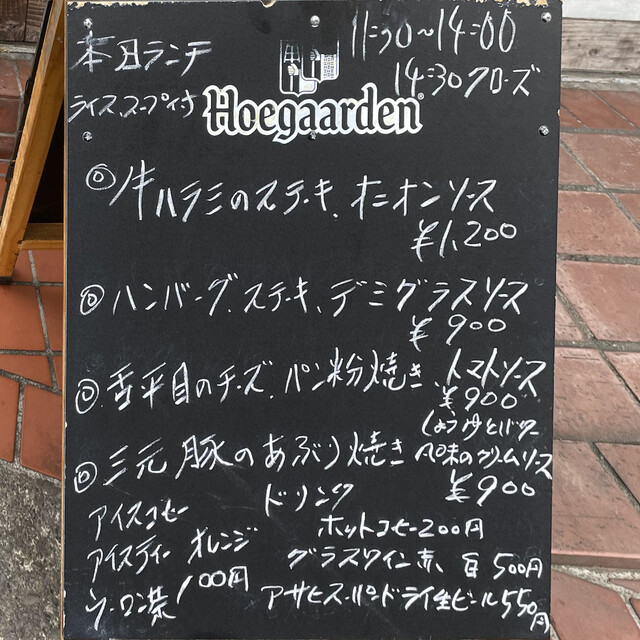 本日ランチ
11:30~14:00
14:30クローズ
ライス、スープイ寸
Hoegaarden
◎牛ハラミのステーキ、オニオンソース
¥1,200
◎ハンバーグ、ステーキ、デミグラスソース
¥900
◎舌平目のチーズ、パン粉焼き、トマトソース
¥900
◎三元豚のあぶり焼き
しょうゆとバター
風味のクリームソース
¥900
ドリンク
アイスコーヒー
アイスティー オレンジ
ウーロン茶 100円
ホットコーヒー200円
グラスワイン赤、白 500円
アサヒスーパードライ生ビール550円